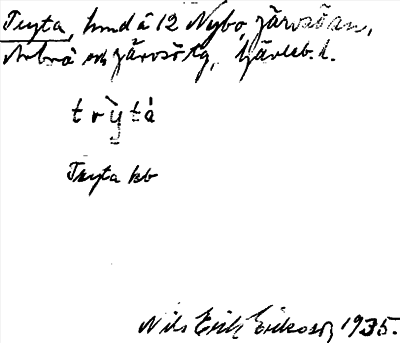 Tryta, hmd å 12 Nybo, Järvsöan,
Arbrå sn Järvsö tg, Gävleb. l.
trỳtá
Tryta kb
Nils Erik Eriksson 1935.